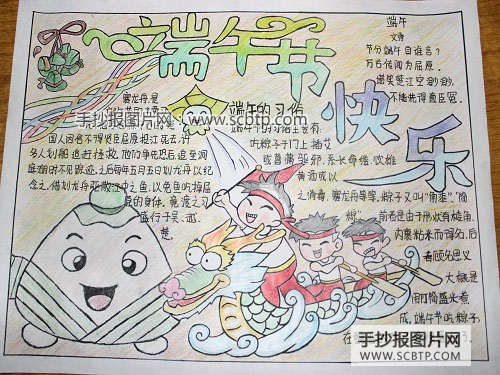 端午节
快乐
端午
文秀
节分端午自谁言？
万古传闻为屈原。
堪笑楚江空渺渺，
不能洗得直臣冤。
赛龙舟，是
国人因舍不得贤臣屈原投江死去，许
多人划船追赶拯救。他们争先恐后，追至洞
庭湖时不见踪迹。之后每年五月五日划龙舟以纪
念之。借划龙舟驱散江中之鱼，以免鱼吃掉屈
原的身体。竞渡之习
盛行于吴、越、
楚。
端午的习俗
端午节的习俗主要有
吃粽子，门上插艾
或菖蒲驱邪，系长命缕，饮雄
黄酒或以
之消毒，赛龙舟等等。粽子又叫"角黍"、"筒
粽"，
前者是由于形状有棱角、
内裹粘米而得名，后
者顾名思义
大概是
用竹筒盛米煮
成。端午节吃粽子，
手抄报图片网
WWW.SCBTP.COM
手抄报图片网
WWW.SCBTP.COM